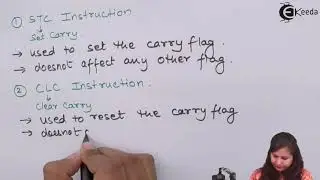 Ekeeda
① STC Instruction
↓
Set Carry.
→ used to set the carry flag.
→ doesnot affect any other flag.
② CLC Instruction.
↓
Clear Carry
→ used to reset the carry flag
→ doesnot